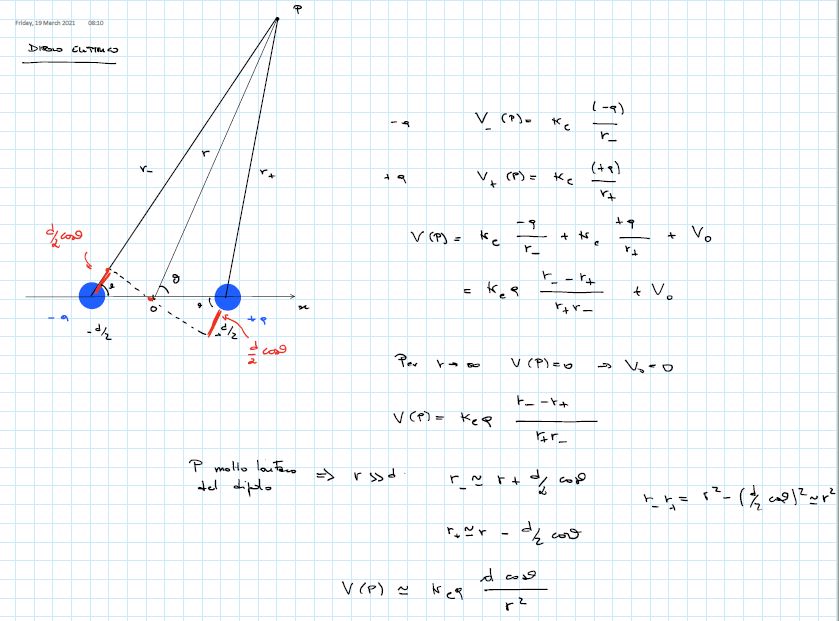 Friday, 19 March 2021 08:10
DIPOLO ELETTRICO
P
r_
r
r+
d/2 cosθ
θ
θ
θ
o
x
-q
-d/2
+d/2
+q
d/2 cosθ
-q V_(P) = Kc (-q)/r_
+q V+(P) = Kc (+q)/r+
V(P) = Kc -q/r_ + Kc +q/r+ + V₀
= Kc q (r_ - r+)/(r+ r_) + V₀
Per r → ∞ V(P) = 0 ⇒ V₀ = 0
V(P) = Kc q (r_ - r+)/(r+ r_)
P molto lontano
del dipolo
⇒ r >> d
r_ ≃ r + d/2 cosθ
r+ ≃ r - d/2 cosθ
r_ r+ = r² - (d/2 cosθ)² ≃ r²
V(P) ≃ Kc q (d cosθ)/r²